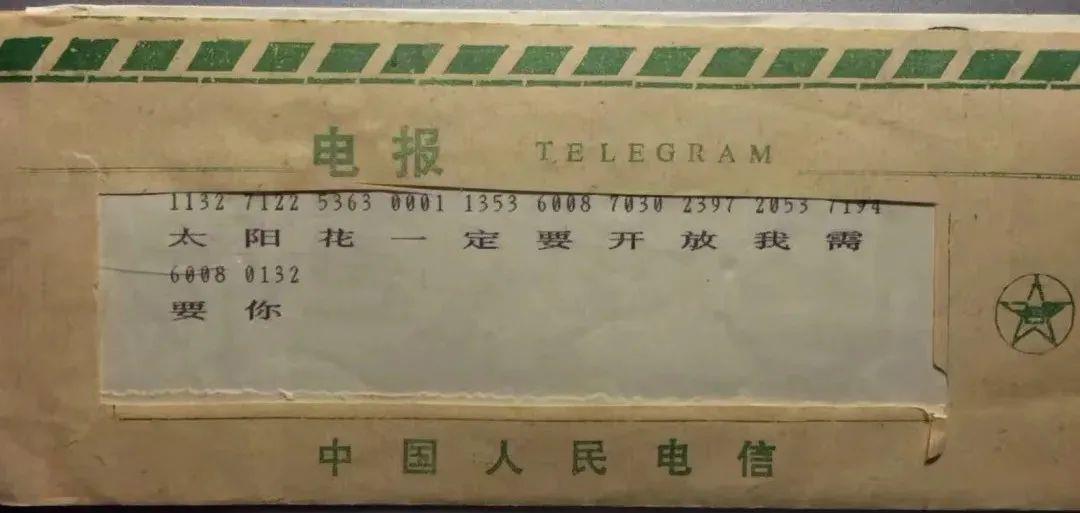 电报 TELEGRAM
1132 7122 5363 0001 1353 6008 7030 2397 2053 7194
太 阳 花 一 定 要 开 放 我 需
6008 0132
要 你
中国人民电信